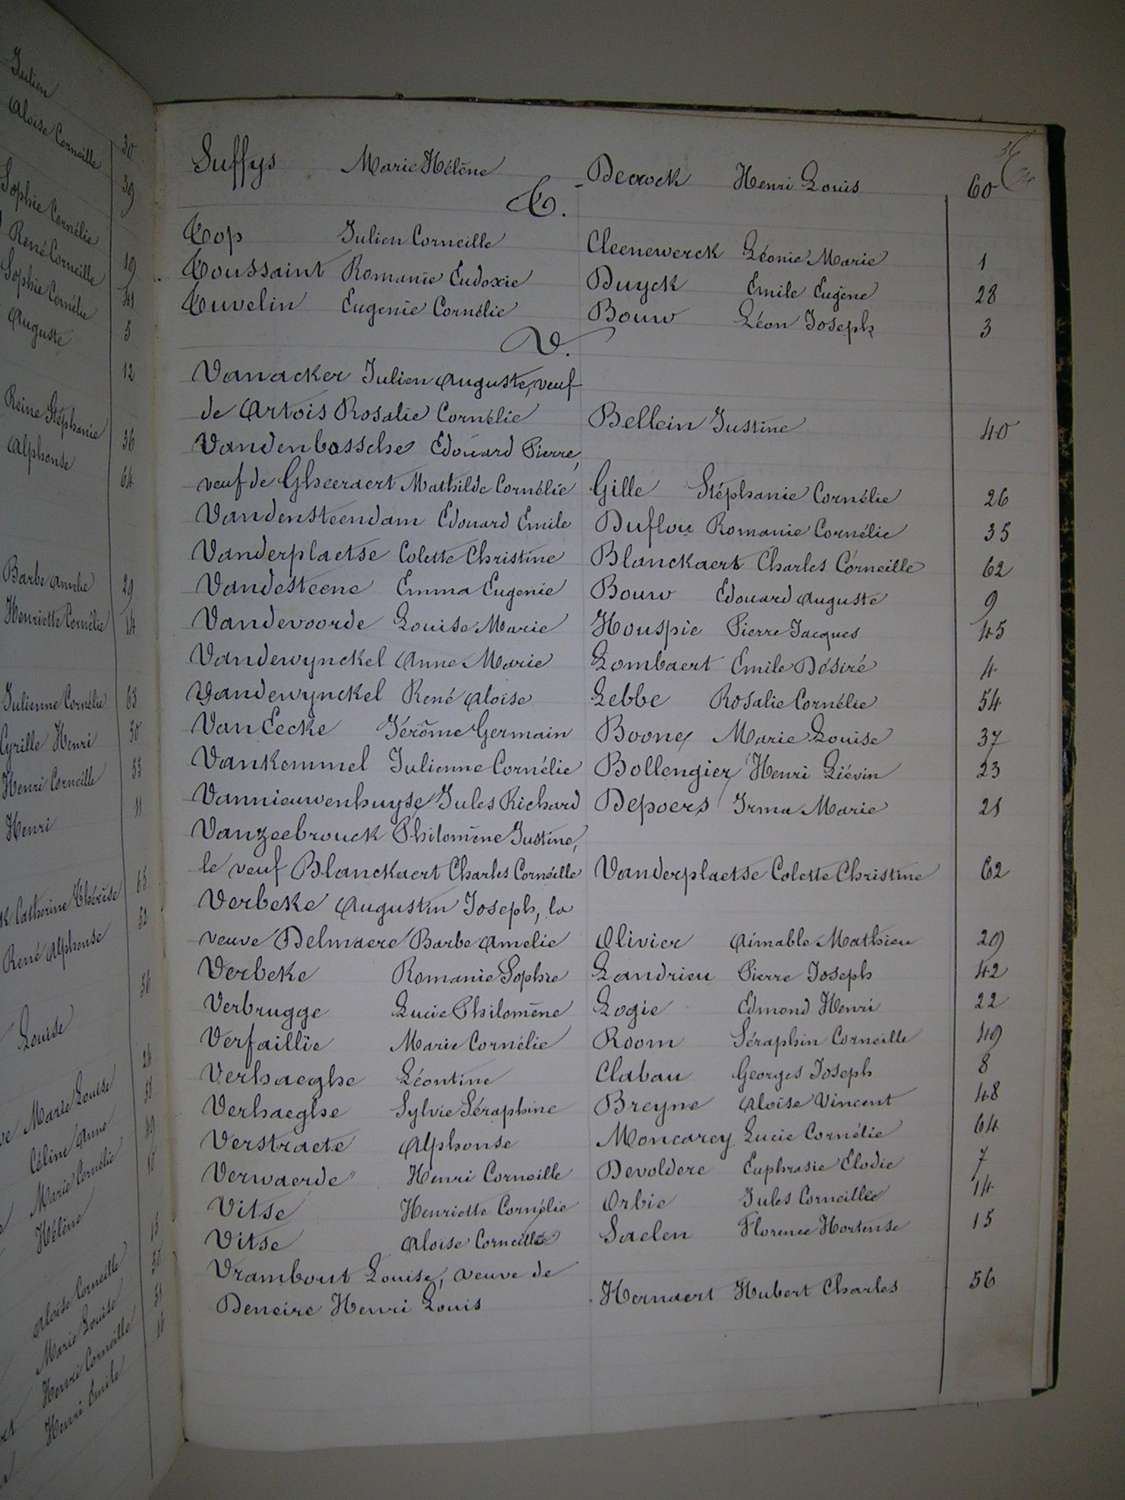 Julien
Aloïse Corneille 30
39
Sophie Cornélie
René Corneille 19
Sophie Cornélie 41
Auguste 5
12
Reine Stéphanie
Alphonse 36
64
Barbe Amélie 29
Henriette Cornélie 14
Julienne Cornélie 63
Cyrille Henri 50
Henri Corneille 53
Henri 11
Catherine Thérèse
René Alphonse 52
56
Louise
Marie Louise
Céline Anne
Marie Cornélie
Hélène
Aloïse Corneille
Marie Louise
Henri Corneille
Henri Emile
Suffys Marie Hélène Decrock Henri Louis 60
T.
Top Julien Corneille Cleenewerck Léonie Marie 1
Toussaint Romanie Eudoxie Duyck Emile Eugène 28
Tuvelin Eugenie Cornélie Bouw Léon Joseph 3
V.
Vanacker Julien Auguste, veuf
de Artois Rosalie Cornélie Bellein Justine 40
Vandenbossche Edouard Pierre,
veuf de Gheeraert Mathilde Cornélie Gille Stéphanie Cornélie 26
Vandensteendam Edouard Emile Duflou Romanie Cornélie 35
Vanderplaetse Colette Christine Blanckaert Charles Corneille 62
Vandesteene Emma Eugenie Bouw Edouard Auguste 9
Vandevoorde Louise Marie Houspie Pierre Jacques 45
Vandewynckel Anne Marie Lombaert Emile Désiré 4
Vandewynckel René Aloïse Lebbe Rosalie Cornélie 54
VanEecke Jérôme Germain Boone Marie Louise 37
Vankemmel Julienne Cornélie Bollengier Henri Liévin 23
Vannieuwenhuyse Jules Richard Depoers Irma Marie 21
Vanzeebrouck Philomène Justine,
le veuf Blanckaert Charles Corneille Vanderplaetse Colette Christine 62
Verbeke Augustin Joseph, la
veuve Delmaere Barbe Amelie Olivier Aimable Mathieu 29
Verbeke Romanie Sophie Landrieu Pierre Joseph 42
Verbrugge Lucie Philomène Logie Edmond Henri 22
Verfaillie Marie Cornélie Room Séraphin Corneille 49
Verhaeghe Léontine Clabau Georges Joseph 8
Verhaeghe Sylvie Séraphine Breyne Aloïse Vincent 48
Verstraete Alphonse Moncarey Lucie Cornélie 64
Verwaerde Henri Corneille Devoldere Euphrasie Elodie 7
Vitse Henriette Cornélie Orbie Jules Corneille 14
Vitse Aloïse Corneille Saelen Florence Hortense 15
Vrambout Louise, veuve de
Deneire Henri Louis Hernaert Hubert Charles 56